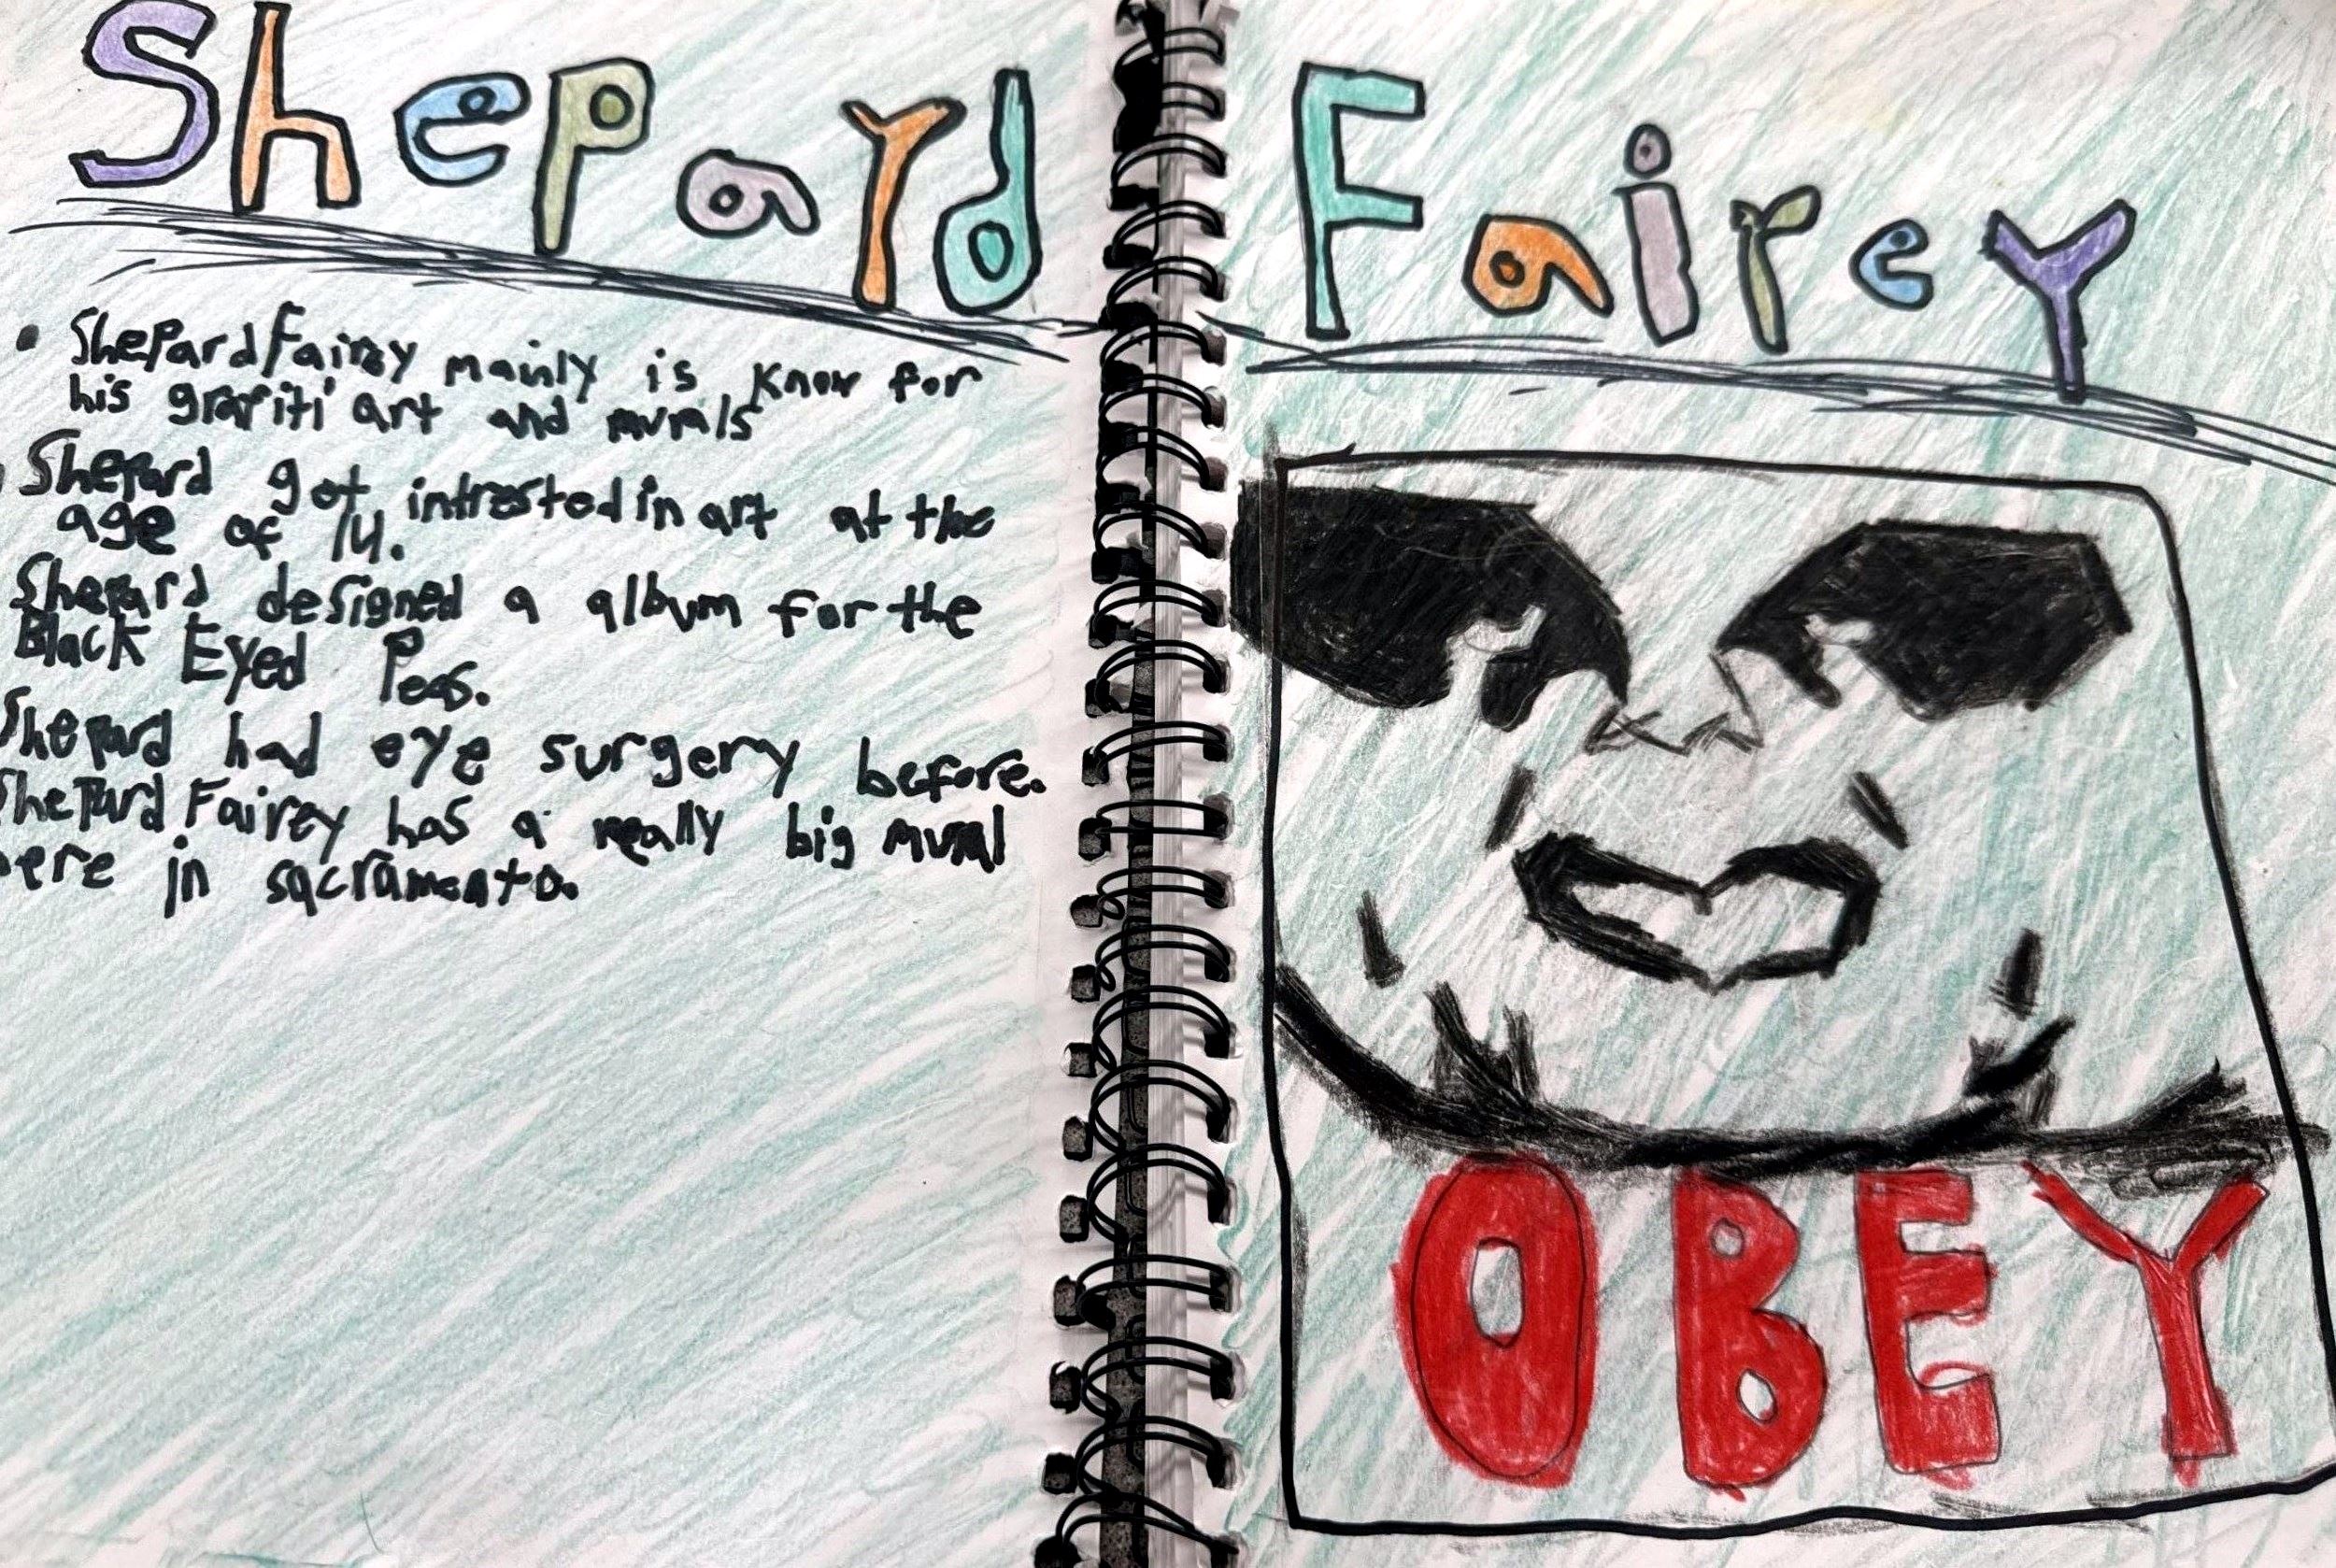 Shepard Fairey
• Shepard Fairey mainly is Know for
his grafiti art and murals
Shepard got intrested in art at the
age of 14.
Shepard designed a album for the
Black Eyed Peas.
Shepard had eye surgery before.
Shepard Fairey has a really big mural
here in sacramento.
OBEY